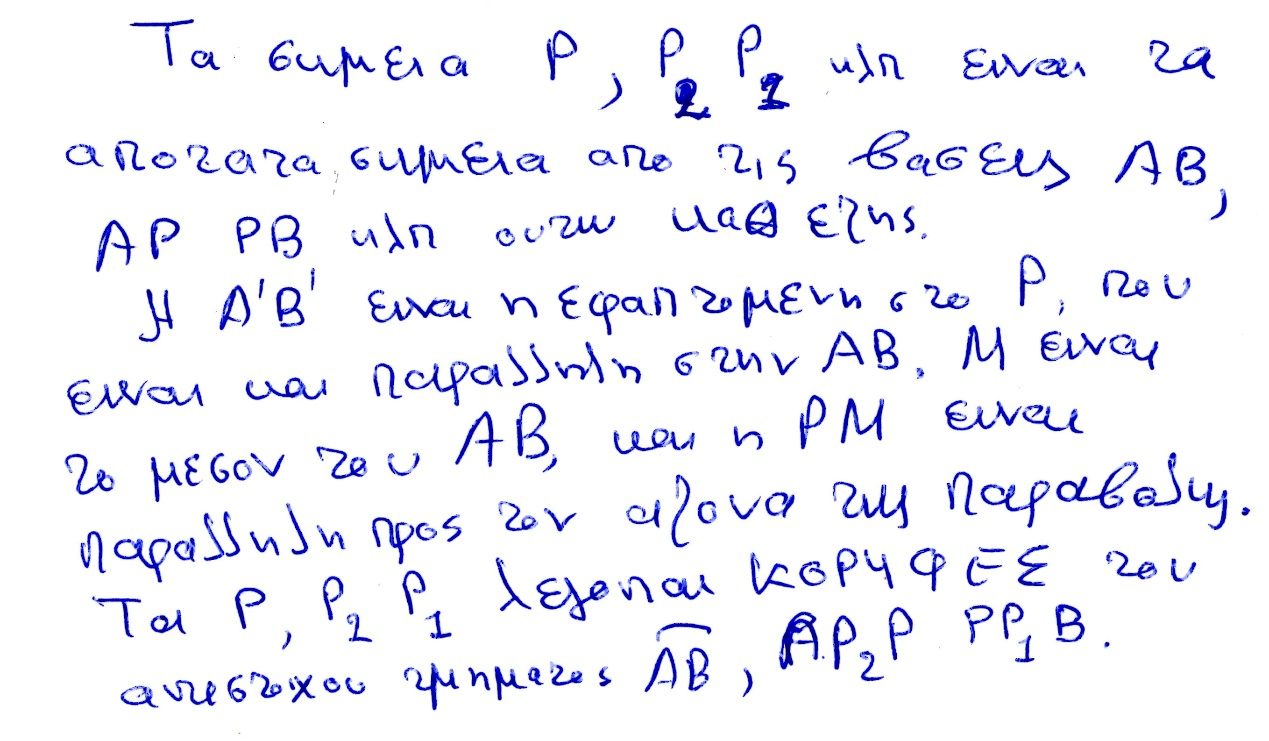 Τα σημεια P, P₂ P₁ κλπ ειναι τα
αποτατα σημεια απο τις βασεις AB,
AP PB κλπ ουτω καθ εξης.
Η A'B' ειναι η εφαπτομενη στο P, που
ειναι και παραλληλη στην AB. M ειναι
το μεσον του AB, και η PM ειναι
παραλληλη προς τον αξονα της παραβολης.
Τα P, P₂ P₁ λεγονται ΚΟΡΥΦΕΣ του
αντιστοιχου τμηματος AB, AP₂P PP₁B.